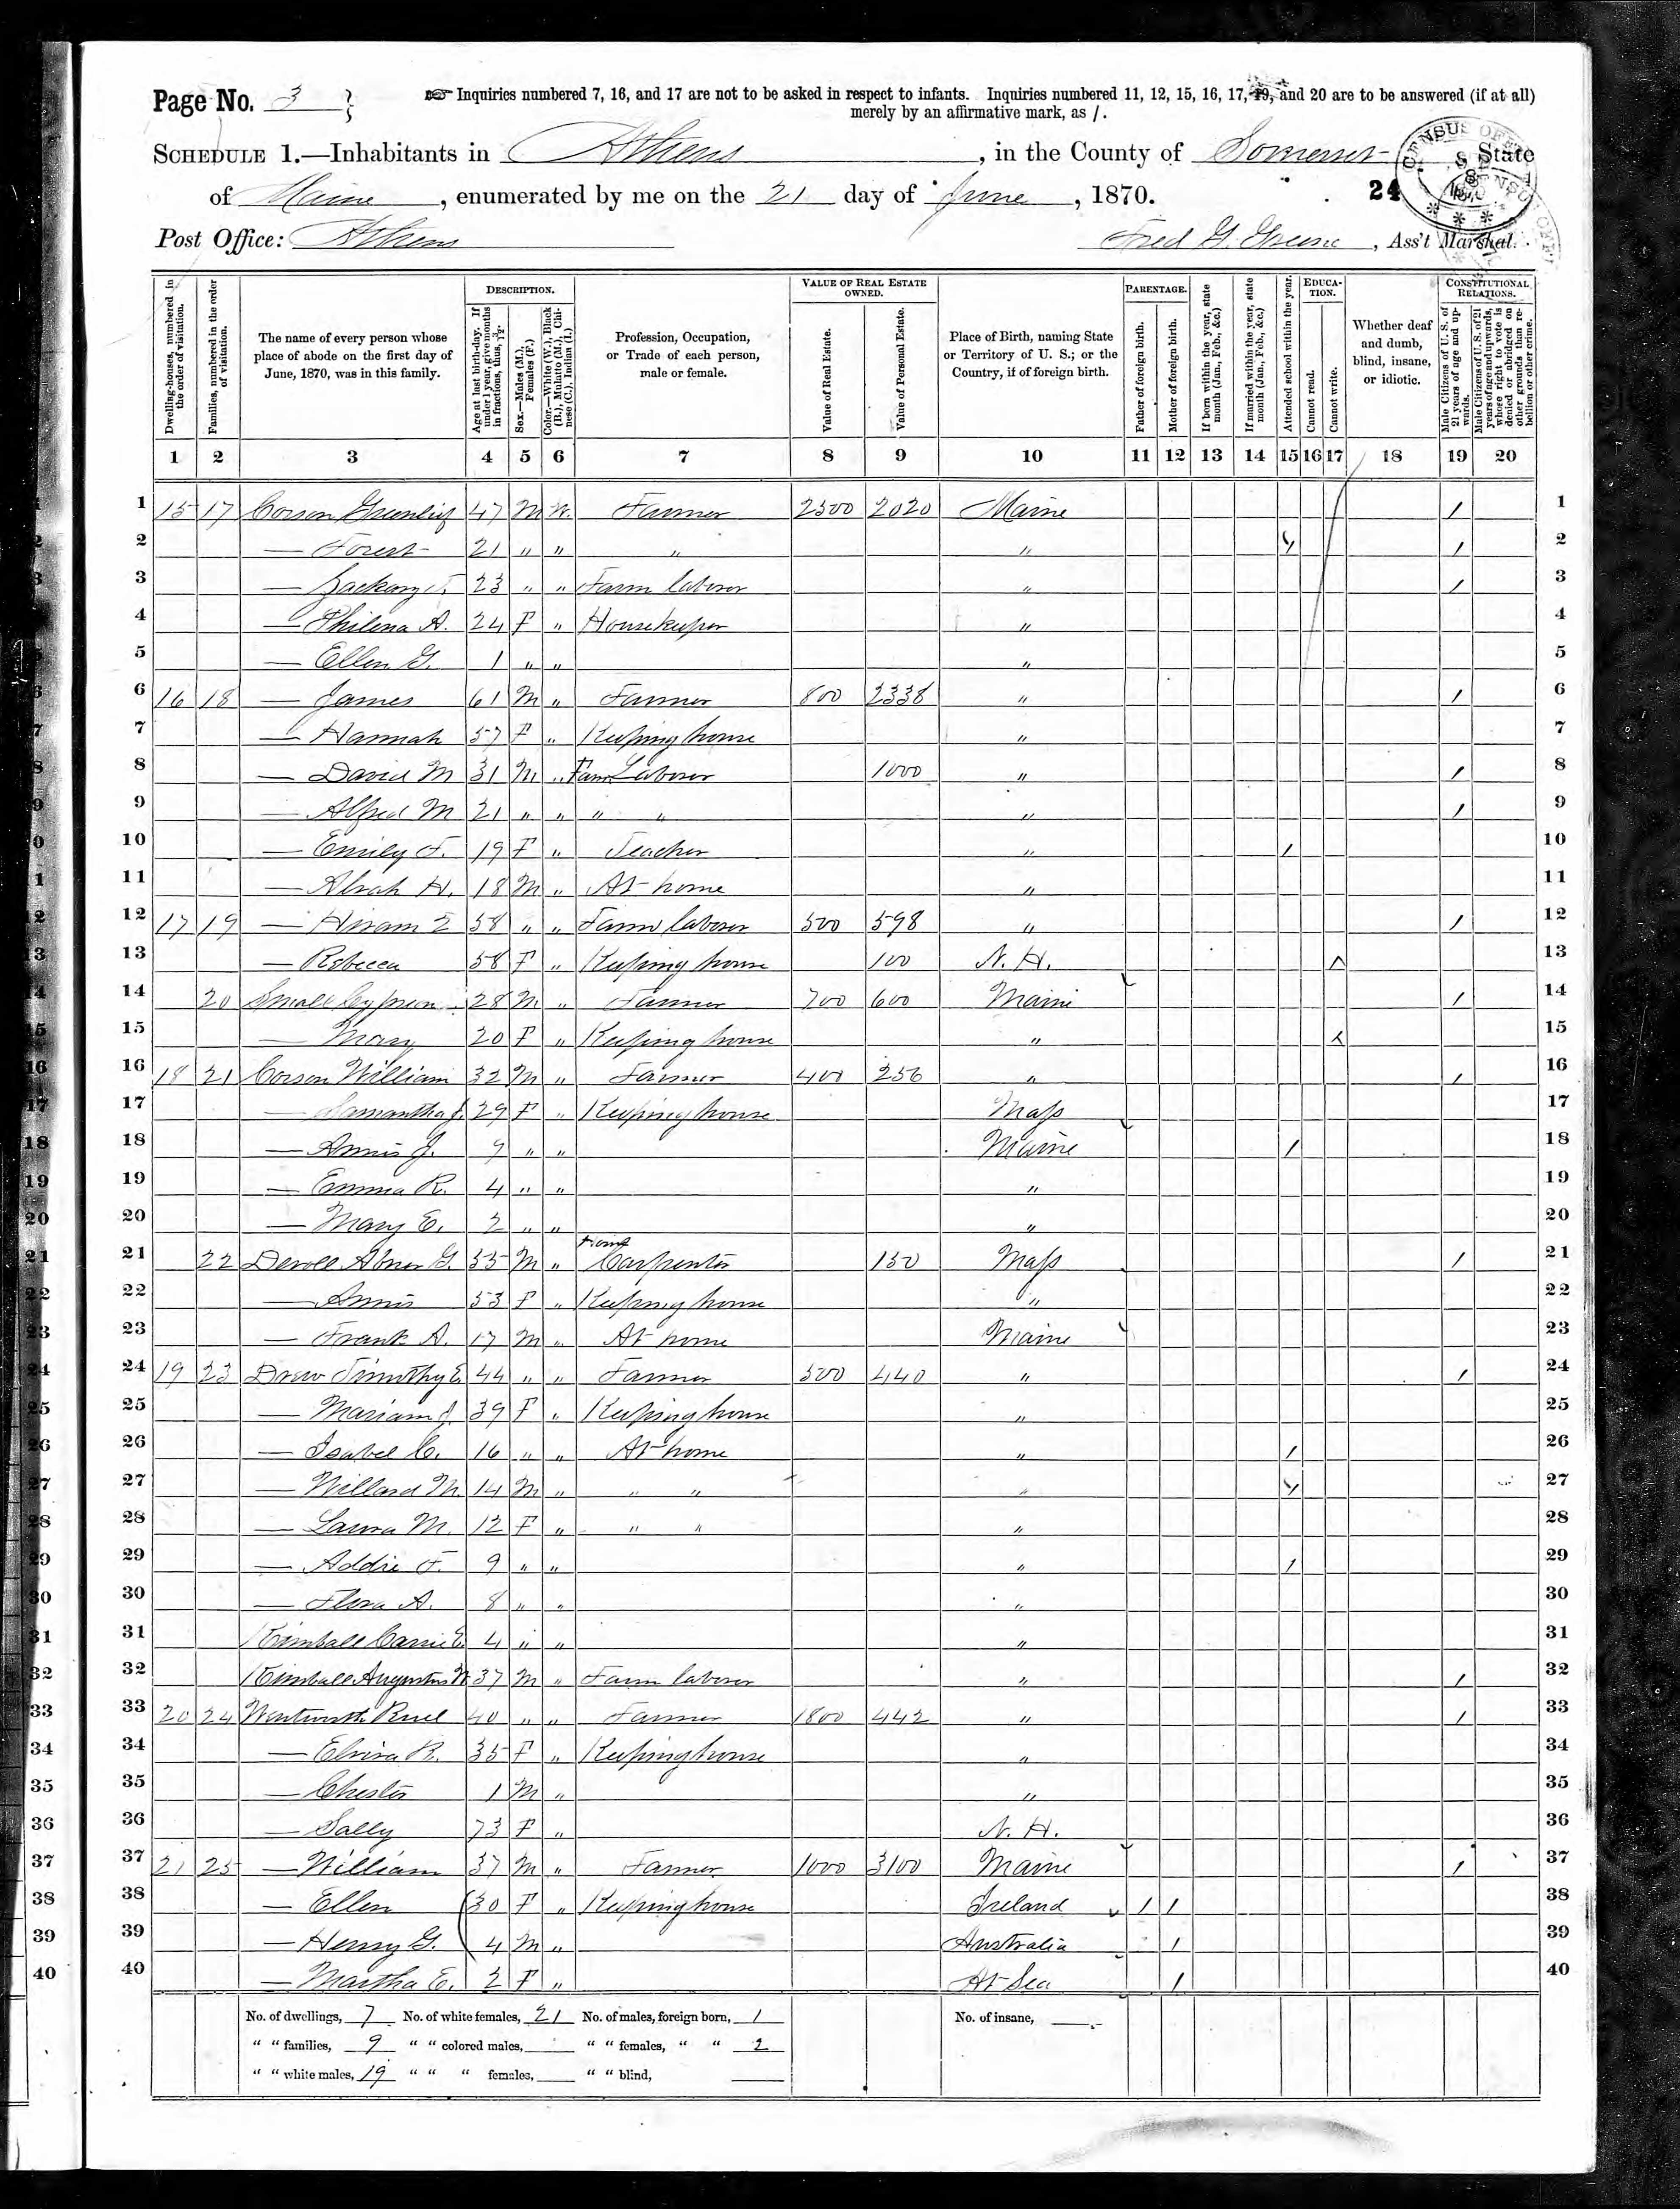 Page No. 3
Inquiries numbered 7, 16, and 17 are not to be asked in respect to infants. Inquiries numbered 11, 12, 15, 16, 17, 19, and 20 are to be answered (if at all)
merely by an affirmative mark, as /.
SCHEDULE 1.—Inhabitants in Athens, in the County of Somerset State
of Maine, enumerated by me on the 21 day of June, 1870. 24
Post Office: Athens Fred G. Greene, Ass't Marshal.
DESCRIPTION. VALUE OF REAL ESTATE OWNED. PARENTAGE. EDUCATION. CONSTITUTIONAL RELATIONS.
Dwelling-houses, numbered in the order of visitation.
Families, numbered in the order of visitation.
The name of every person whose place of abode on the first day of June, 1870, was in this family.
Age at last birth-day. If under 1 year, give months in fractions, thus, 3/12.
Sex.—Males (M.), Females (F.)
Color.—White (W.), Black (B.), Mulatto (M.), Chinese (C.), Indian (I.)
Profession, Occupation, or Trade of each person, male or female.
Value of Real Estate.
Value of Personal Estate.
Place of Birth, naming State or Territory of U. S.; or the Country, if of foreign birth.
Father of foreign birth.
Mother of foreign birth.
If born within the year, state month (Jan., Feb., &c.)
If married within the year, state month (Jan., Feb., &c.)
Attended school within the year.
Cannot read.
Cannot write.
Whether deaf and dumb, blind, insane, or idiotic.
Male Citizens of U. S. of 21 years of age and upwards.
Male Citizens of U. S. of 21 years of age and upwards, whose right to vote is denied or abridged on other grounds than rebellion or other crime.
1 2 3 4 5 6 7 8 9 10 11 12 13 14 15 16 17 18 19 20
1 15 17 Corson Greenlief 47 M W. Farmer 2500 2020 Maine / 1
2 — Forest 21 " " " " / 2
3 — Zackary T. 23 " " Farm laborer " / 3
4 — Philena A. 24 F " Housekeeper " 4
5 — Ellen G. 1 " " " 5
6 16 18 — James 61 M " Farmer 800 2338 " / 6
7 — Hannah 57 F " Keeping house " 7
8 — David M 31 M " Farm Laborer 1000 " / 8
9 — Alfred M 21 " " " " " / 9
10 — Emily F. 19 F " Teacher " / 10
11 — Alvah H. 18 M " At home " 11
12 17 19 — Hiram 58 " " Farm laborer 500 598 " / 12
13 — Rebecca 58 F " Keeping house 100 N. H. 13
14 20 Small 28 M " Farmer 700 600 Maine / 14
15 — Mary 20 F " Keeping house " 15
16 18 21 Corson William 32 M " Farmer 400 256 " / 16
17 — Samantha J. 29 F " Keeping house Mass 17
18 — Annis J. 9 " " Maine / 18
19 — Emma R. 4 " " " 19
20 — Mary E. 2 " " " 20
21 22 Abner G. 55 M " Carpenter 150 Mass / 21
22 — Annis 53 F " Keeping house " 22
23 — Frank A. 17 M " At home Maine 23
24 19 23 Drew Timothy E 44 " " Farmer 500 440 " / 24
25 — Mariam J. 39 F " Keeping house " 25
26 — Isabel C. 16 " " At home " / 26
27 — Willard M. 14 M " " " " / 27
28 — Laura M. 12 F " " " " 28
29 — Addie F. 9 " " " / 29
30 — Flora A. 8 " " " 30
31 Kimball Carrie E. 4 " " " 31
32 Kimball Augustus W 37 M " Farm laborer " / 32
33 20 24 Wentworth Ruel 40 " " Farmer 1800 442 " / 33
34 — Elvira R. 35 F " Keeping house " 34
35 — Chester 1 M " " 35
36 — Sally 73 F " N. H. 36
37 21 25 — William 37 M " Farmer 1000 3100 Maine / 37
38 — Ellen 30 F " Keeping house Ireland / / 38
39 — Henry G. 4 M " Australia / 39
40 — Martha E. 2 F " At Sea / 40
No. of dwellings, 7 No. of white females, 21 No. of males, foreign born, 1 No. of insane,
" " families, 9 " " colored males, " " females, " " 2
" " white males, 19 " " " females, " " blind,